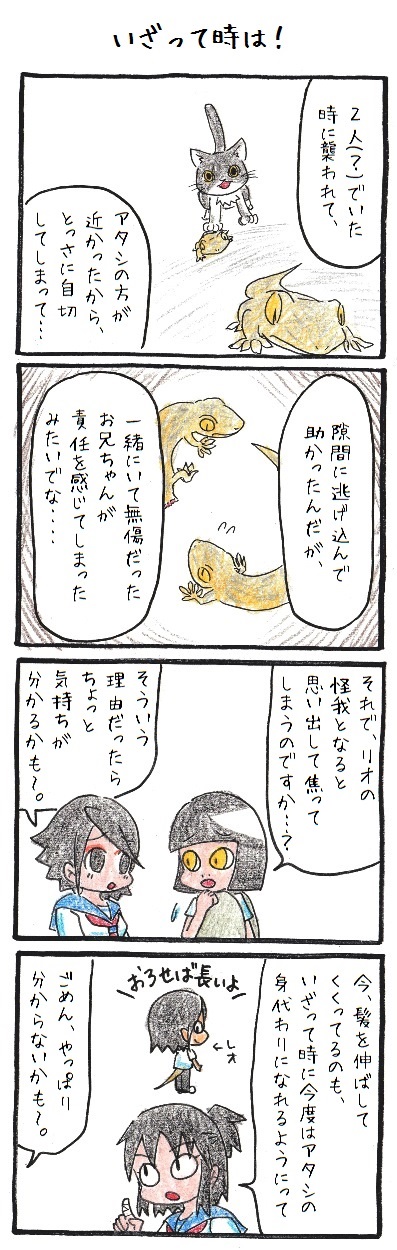 いざって時は！
２人(？)でいた
時に襲われて、
アタシの方が
近かったから、
とっさに自切
してしまって…
隙間に逃げ込んで
助かったんだが、
一緒にいて無傷だった
お兄ちゃんが
責任を感じてしまった
みたいでな‥‥
それで、リオの
怪我となると
思い出して焦って
しまうのですか‥？
そういう
理由だったら
ちょっと
気持ちが
分かるかも～。
今、髪を伸ばして
くくってるのも、
いざって時に今度はアタシの
身代わりになれるようにって
おろせば長いよ
←レオ
ごめん、やっぱり
分からないかも～。